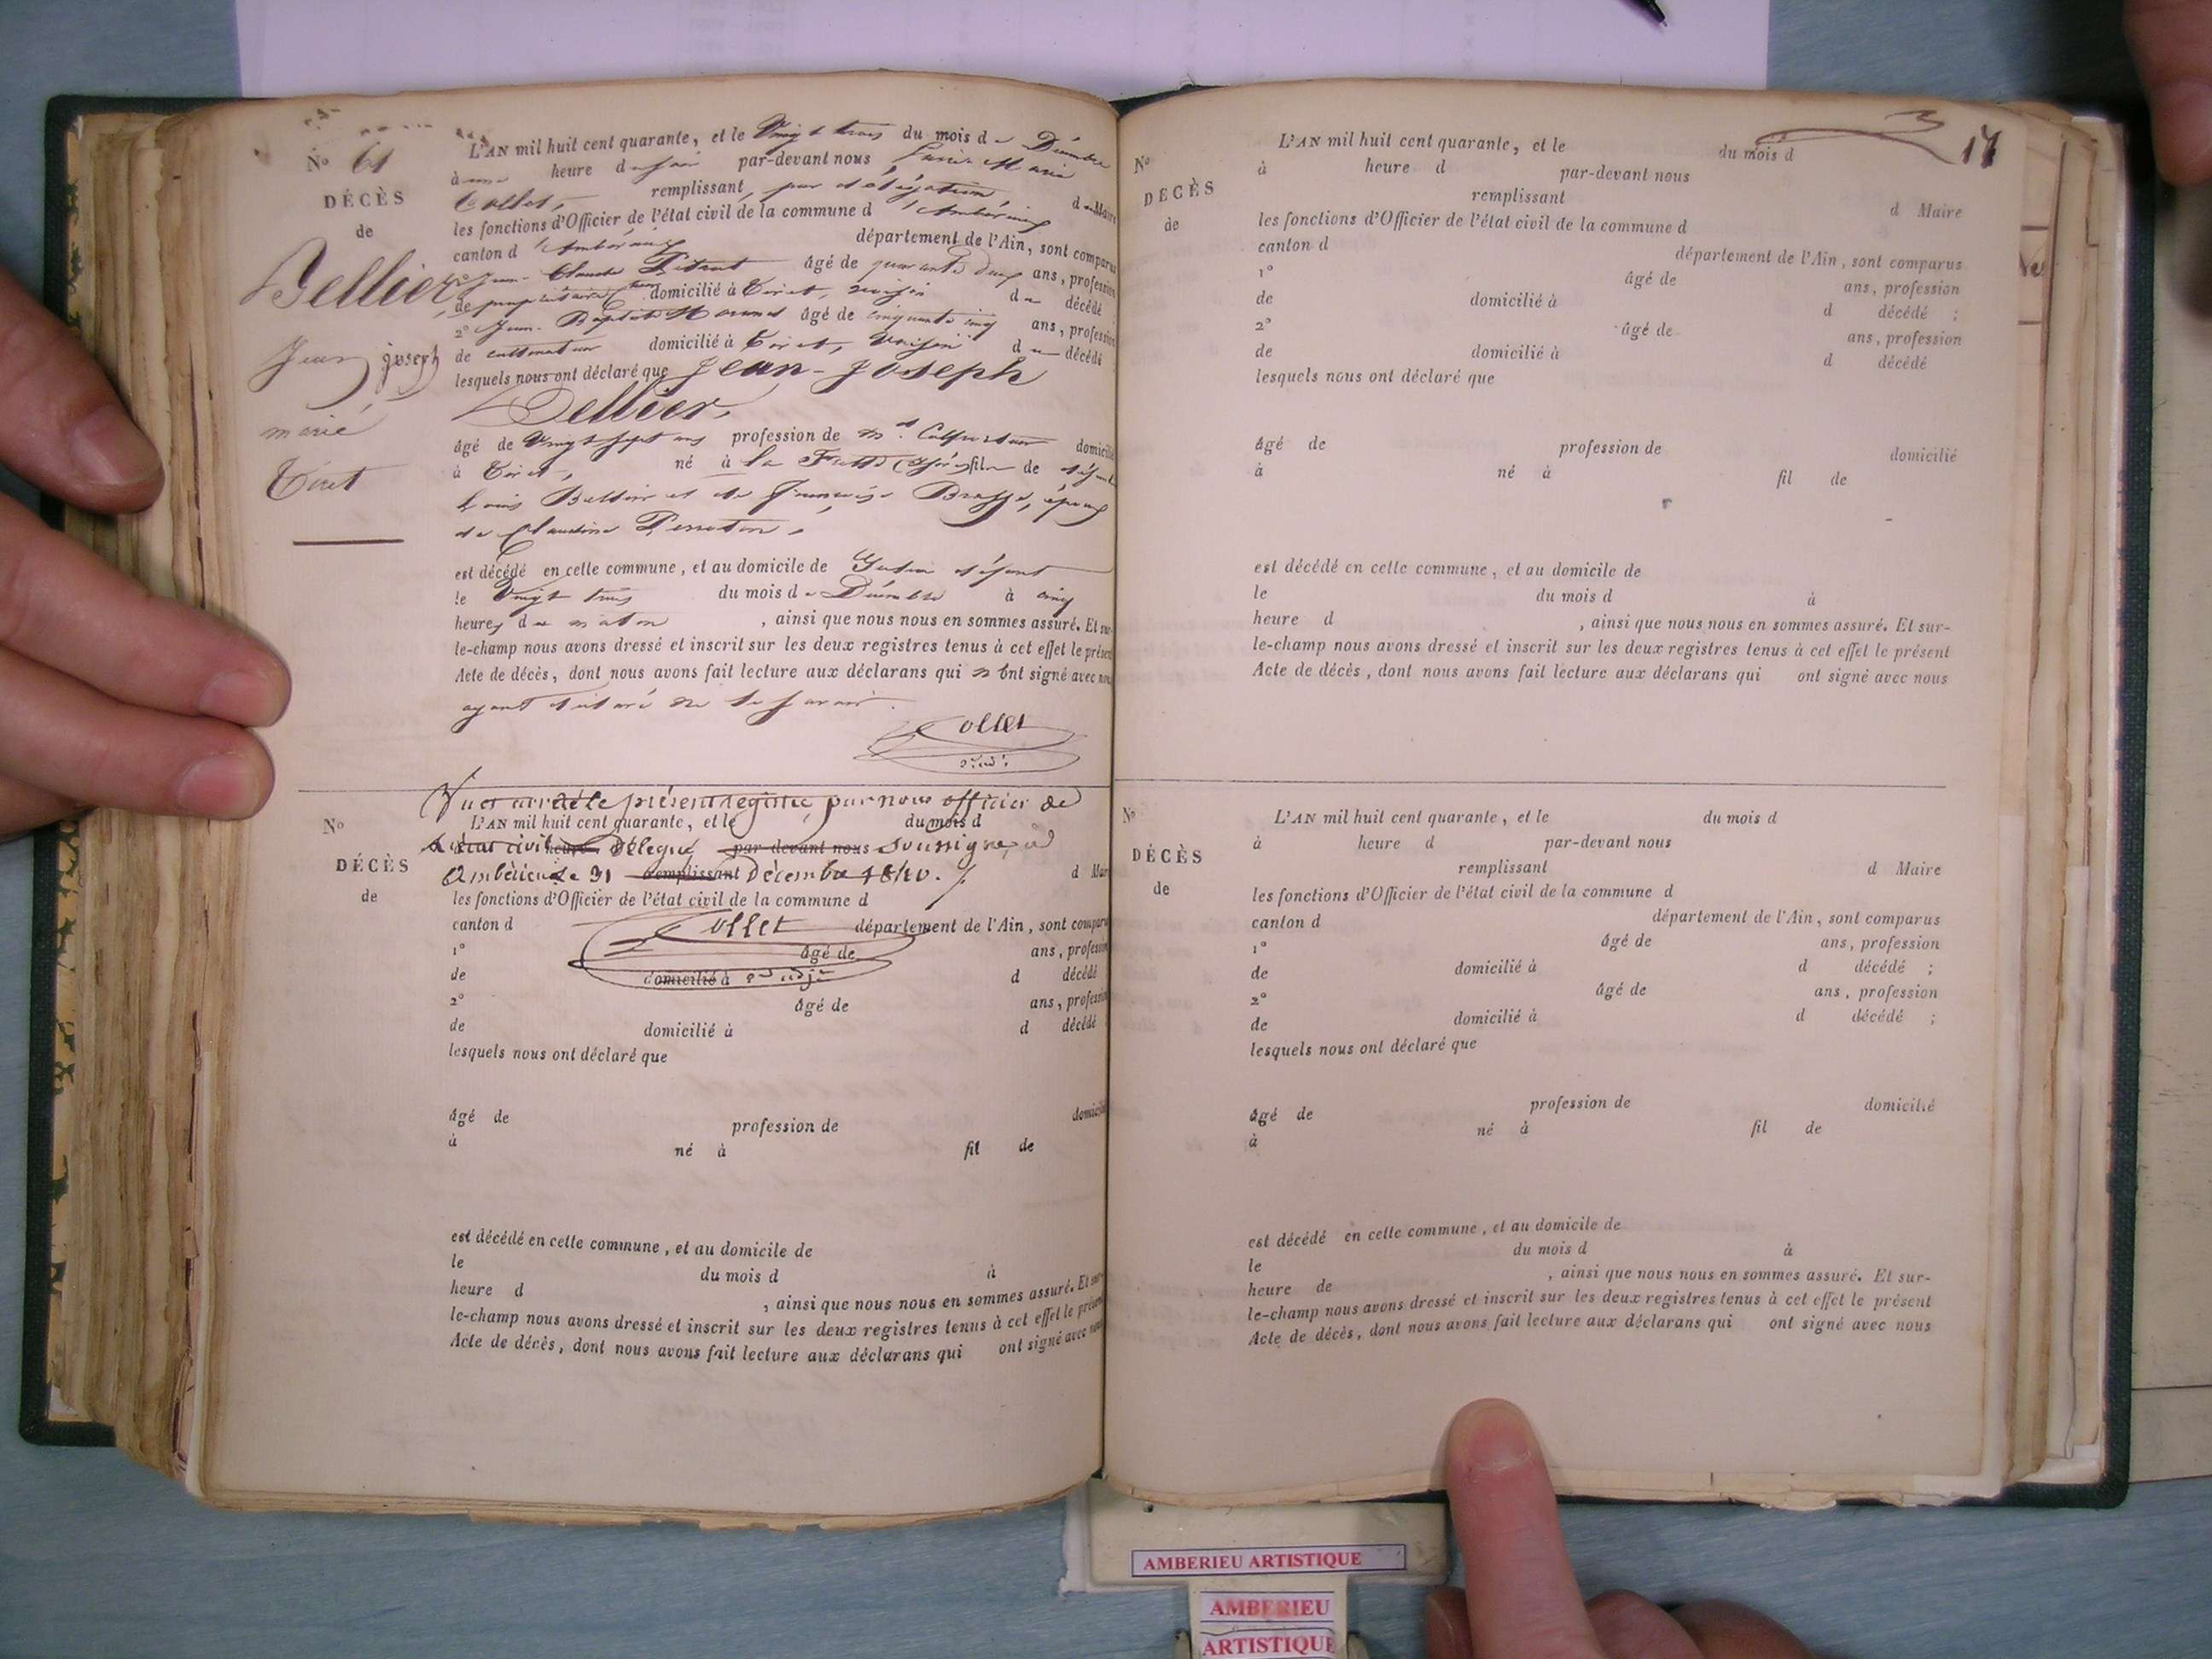 N° 61
DÉCÈS
de
Bellier
Jean joseph
marié
Tiret
L'AN mil huit cent quarante, et le Vingt trois du mois de Décembre
à une heure du soir par-devant nous Marie
Collet, remplissant, par délégation, du Maire
les fonctions d'Officier de l'état civil de la commune d'Ambérieux
canton d'Ambérieux département de l'Ain, sont comparus
1° Jean-Claude Pitrat âgé de quarante deux ans, profession
de propriétaire domicilié à Tiret, voisin du décédé
2° Jean-Baptiste âgé de cinquante cinq ans, profession
de cultivateur domicilié à Tiret, Voisin du décédé
lesquels nous ont déclaré que Jean-Joseph
Bellier,
âgé de Vingt sept ans profession de md Colporteur domicilié
à Tiret, né à la (Isère) fils de défunt
Louis Bellier et de Françoise époux
de Claudine Perrotin,
est décédé en cette commune, et au domicile de défunt
le Vingt trois du mois de Décembre à cinq
heures du matin, ainsi que nous nous en sommes assuré. Et sur-
le-champ nous avons dressé et inscrit sur les deux registres tenus à cet effet le présent
Acte de décès, dont nous avons fait lecture aux déclarans qui n'ont signé avec nous
ayant déclaré ne le savoir.
Collet
adj.
Vu et arrêté le présent registre, par nous officier de
N° L'AN mil huit cent quarante, et le du mois d
l'état civil heure Délégué par-devant nous soussigné, à
DÉCÈS
de
Ambérieux le 31 remplissant Décembre 1840. d Maire
les fonctions d'Officier de l'état civil de la commune d
canton d Collet département de l'Ain, sont comparus
1° âgé de ans, profession
de domicilié à adjt d décédé
2° âgé de ans, profession
de domicilié à d décédé
lesquels nous ont déclaré que
âgé de profession de domicilié
à né à fil de
est décédé en cette commune, et au domicile de
le du mois d à
heure d , ainsi que nous nous en sommes assuré. Et sur-
le-champ nous avons dressé et inscrit sur les deux registres tenus à cet effet le présent
Acte de décès, dont nous avons fait lecture aux déclarans qui ont signé avec nous
17
N°
DÉCÈS
de
L'AN mil huit cent quarante, et le du mois d
à heure d par-devant nous
remplissant d Maire
les fonctions d'Officier de l'état civil de la commune d
canton d département de l'Ain, sont comparus
1° âgé de ans, profession
de domicilié à d décédé ;
2° âgé de ans, profession
de domicilié à d décédé
lesquels nous ont déclaré que
âgé de profession de domicilié
à né à fil de
est décédé en cette commune, et au domicile de
le du mois d à
heure d , ainsi que nous nous en sommes assuré. Et sur-
le-champ nous avons dressé et inscrit sur les deux registres tenus à cet effet le présent
Acte de décès, dont nous avons fait lecture aux déclarans qui ont signé avec nous
N°
DÉCÈS
de
L'AN mil huit cent quarante, et le du mois d
à heure d par-devant nous
remplissant d Maire
les fonctions d'Officier de l'état civil de la commune d
canton d département de l'Ain, sont comparus
1° âgé de ans, profession
de domicilié à d décédé ;
2° âgé de ans, profession
de domicilié à d décédé ;
lesquels nous ont déclaré que
âgé de profession de domicilié
à né à fil de
est décédé en cette commune, et au domicile de
le du mois d à
heure de , ainsi que nous nous en sommes assuré. Et sur-
le-champ nous avons dressé et inscrit sur les deux registres tenus à cet effet le présent
Acte de décès, dont nous avons fait lecture aux déclarans qui ont signé avec nous
AMBERIEU ARTISTIQUE
AMBERIEU
ARTISTIQUE